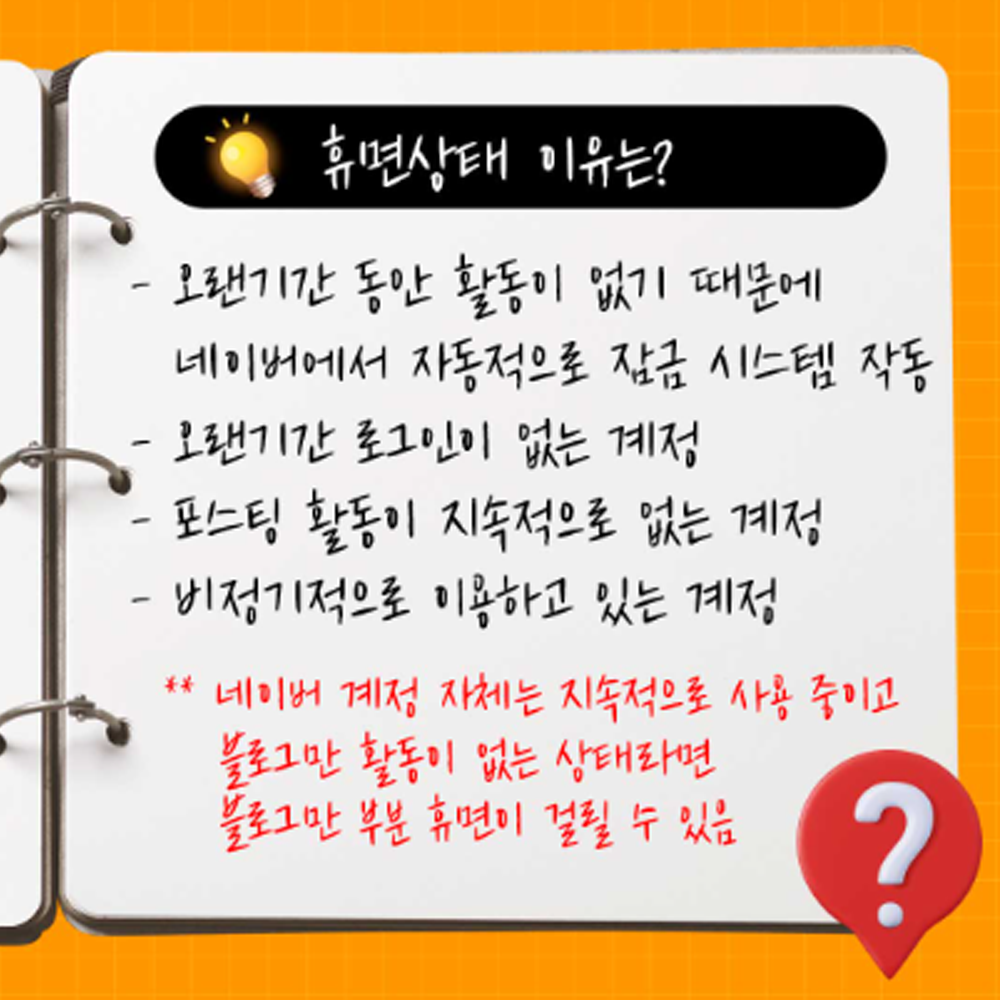 휴면상태 이유는?
- 오랜기간 동안 활동이 없기 때문에
네이버에서 자동적으로 잠금 시스템 작동
- 오랜기간 로그인이 없는 계정
- 포스팅 활동이 지속적으로 없는 계정
- 비정기적으로 이용하고 있는 계정
** 네이버 계정 자체는 지속적으로 사용 중이고
블로그만 활동이 없는 상태라면
블로그만 부분 휴면이 걸릴 수 있음
?